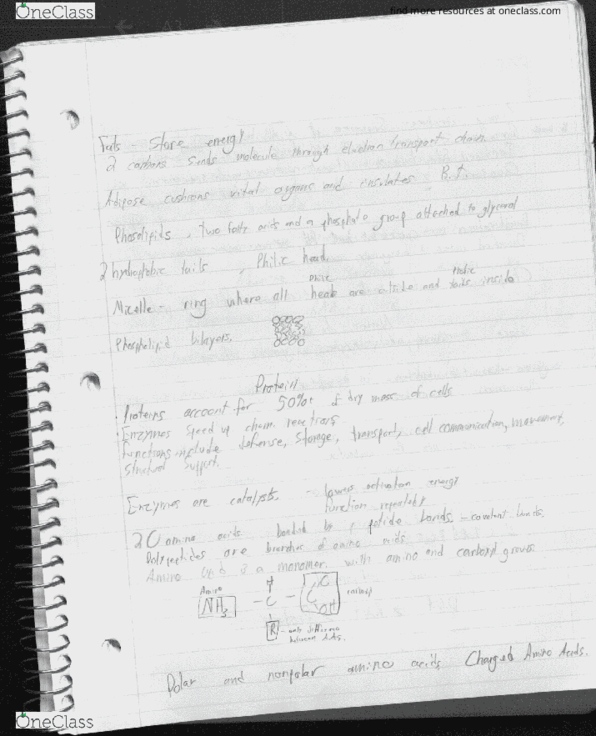 OneClass
find more resources at oneclass.com
Fats - Store energy
2 carbons sends molecule through electron transport chain
Adipose cushions vital organs and insulates.
Phoslipids, two fatty acids and a phosphate group attached to glycerol
2 hydrophobic tails, Philic head,
Micelle - ring where all heads are outside and tails inside
Phospholipid bilayers.
Protein
Proteins account for 50%+ of dry mass of cells
Enzymes speed up chem reactions
Functions include defense, storage, transport, cell communication, movement,
structural support.
Enzymes are catalysts. - lowers activation energy
function repeatably
20 amino acids bonded by peptide bonds. - covalent bonds.
Polypeptides are branches of amino acids.
Amino acid is a monomer with amino and carboxyl groups
Amino
NH3 - C - C O OH carboxyl
R - only difference
between Acids.
Polar and nonpolar amino acids Charged Amino Acids.
OneClass